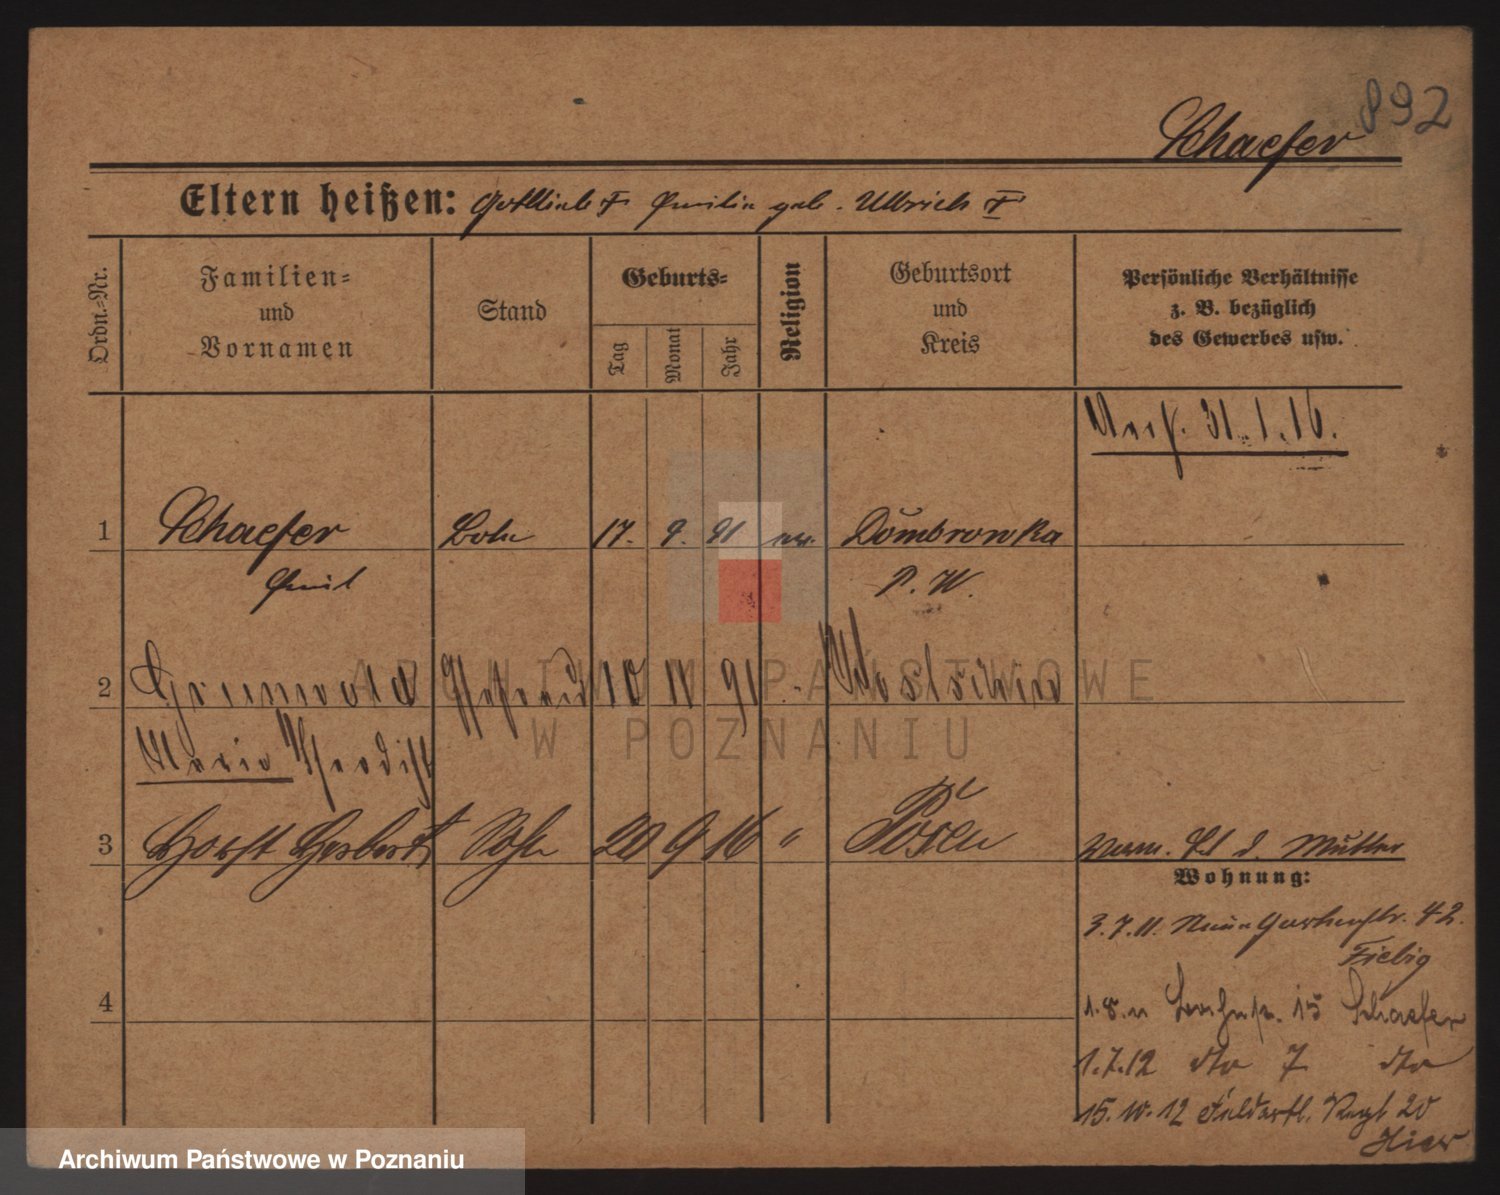 892
Schaefer
Eltern heißen: Gottlieb † Emilie geb. Ullrich †
Ordn.-Nr.
Familien- und Vornamen
Stand
Geburts-
Tag
Monat
Jahr
Religion
Geburtsort und Kreis
Persönliche Verhältnisse z. B. bezüglich des Gewerbes usw.
31.1.16.
1 Schaefer 17. 9. 91 ev. Dombrowka
Emil P. W.
2 Grunwald Ehefrau 10 IV 91
Maria
3 Horst Herbert Sohn 20 9 16 " Posen d. Mutter
Wohnung:
3.7.11. Neue Gartenstr. 42.
Fiebig
4
1.8.11 15 Schaefer
1.7.12 dto 7 dto
15.10.12 Feldartl. Regt 20
Hier
ARCHIWUM PAŃSTWOWE
W POZNANIU
Archiwum Państwowe w Poznaniu